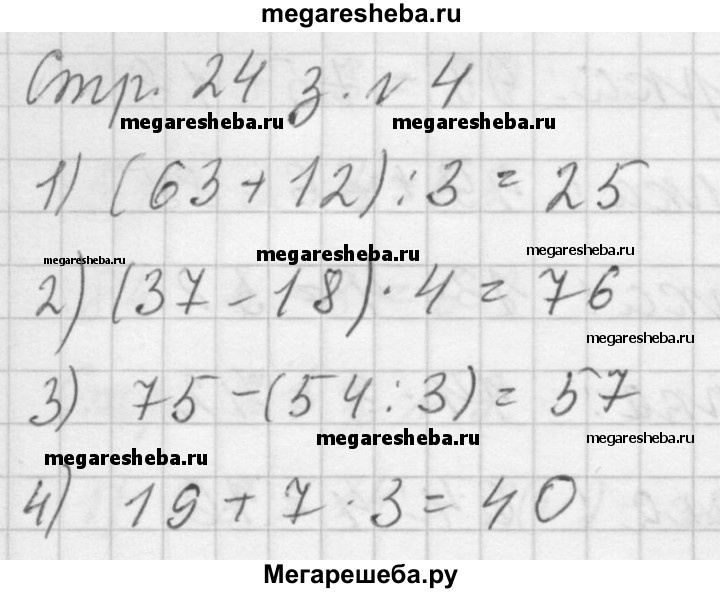 megaresheba.ru
Стр. 24 з. № 4
megaresheba.ru megaresheba.ru
1) (63 + 12) : 3 = 25
megaresheba.ru megaresheba.ru megaresheba.ru
2) (37 - 18) · 4 = 76
megaresheba.ru
3) 75 - (54 : 3) = 57
megaresheba.ru megaresheba.ru
megaresheba.ru
4) 19 + 7 · 3 = 40
Мегарешеба.ру